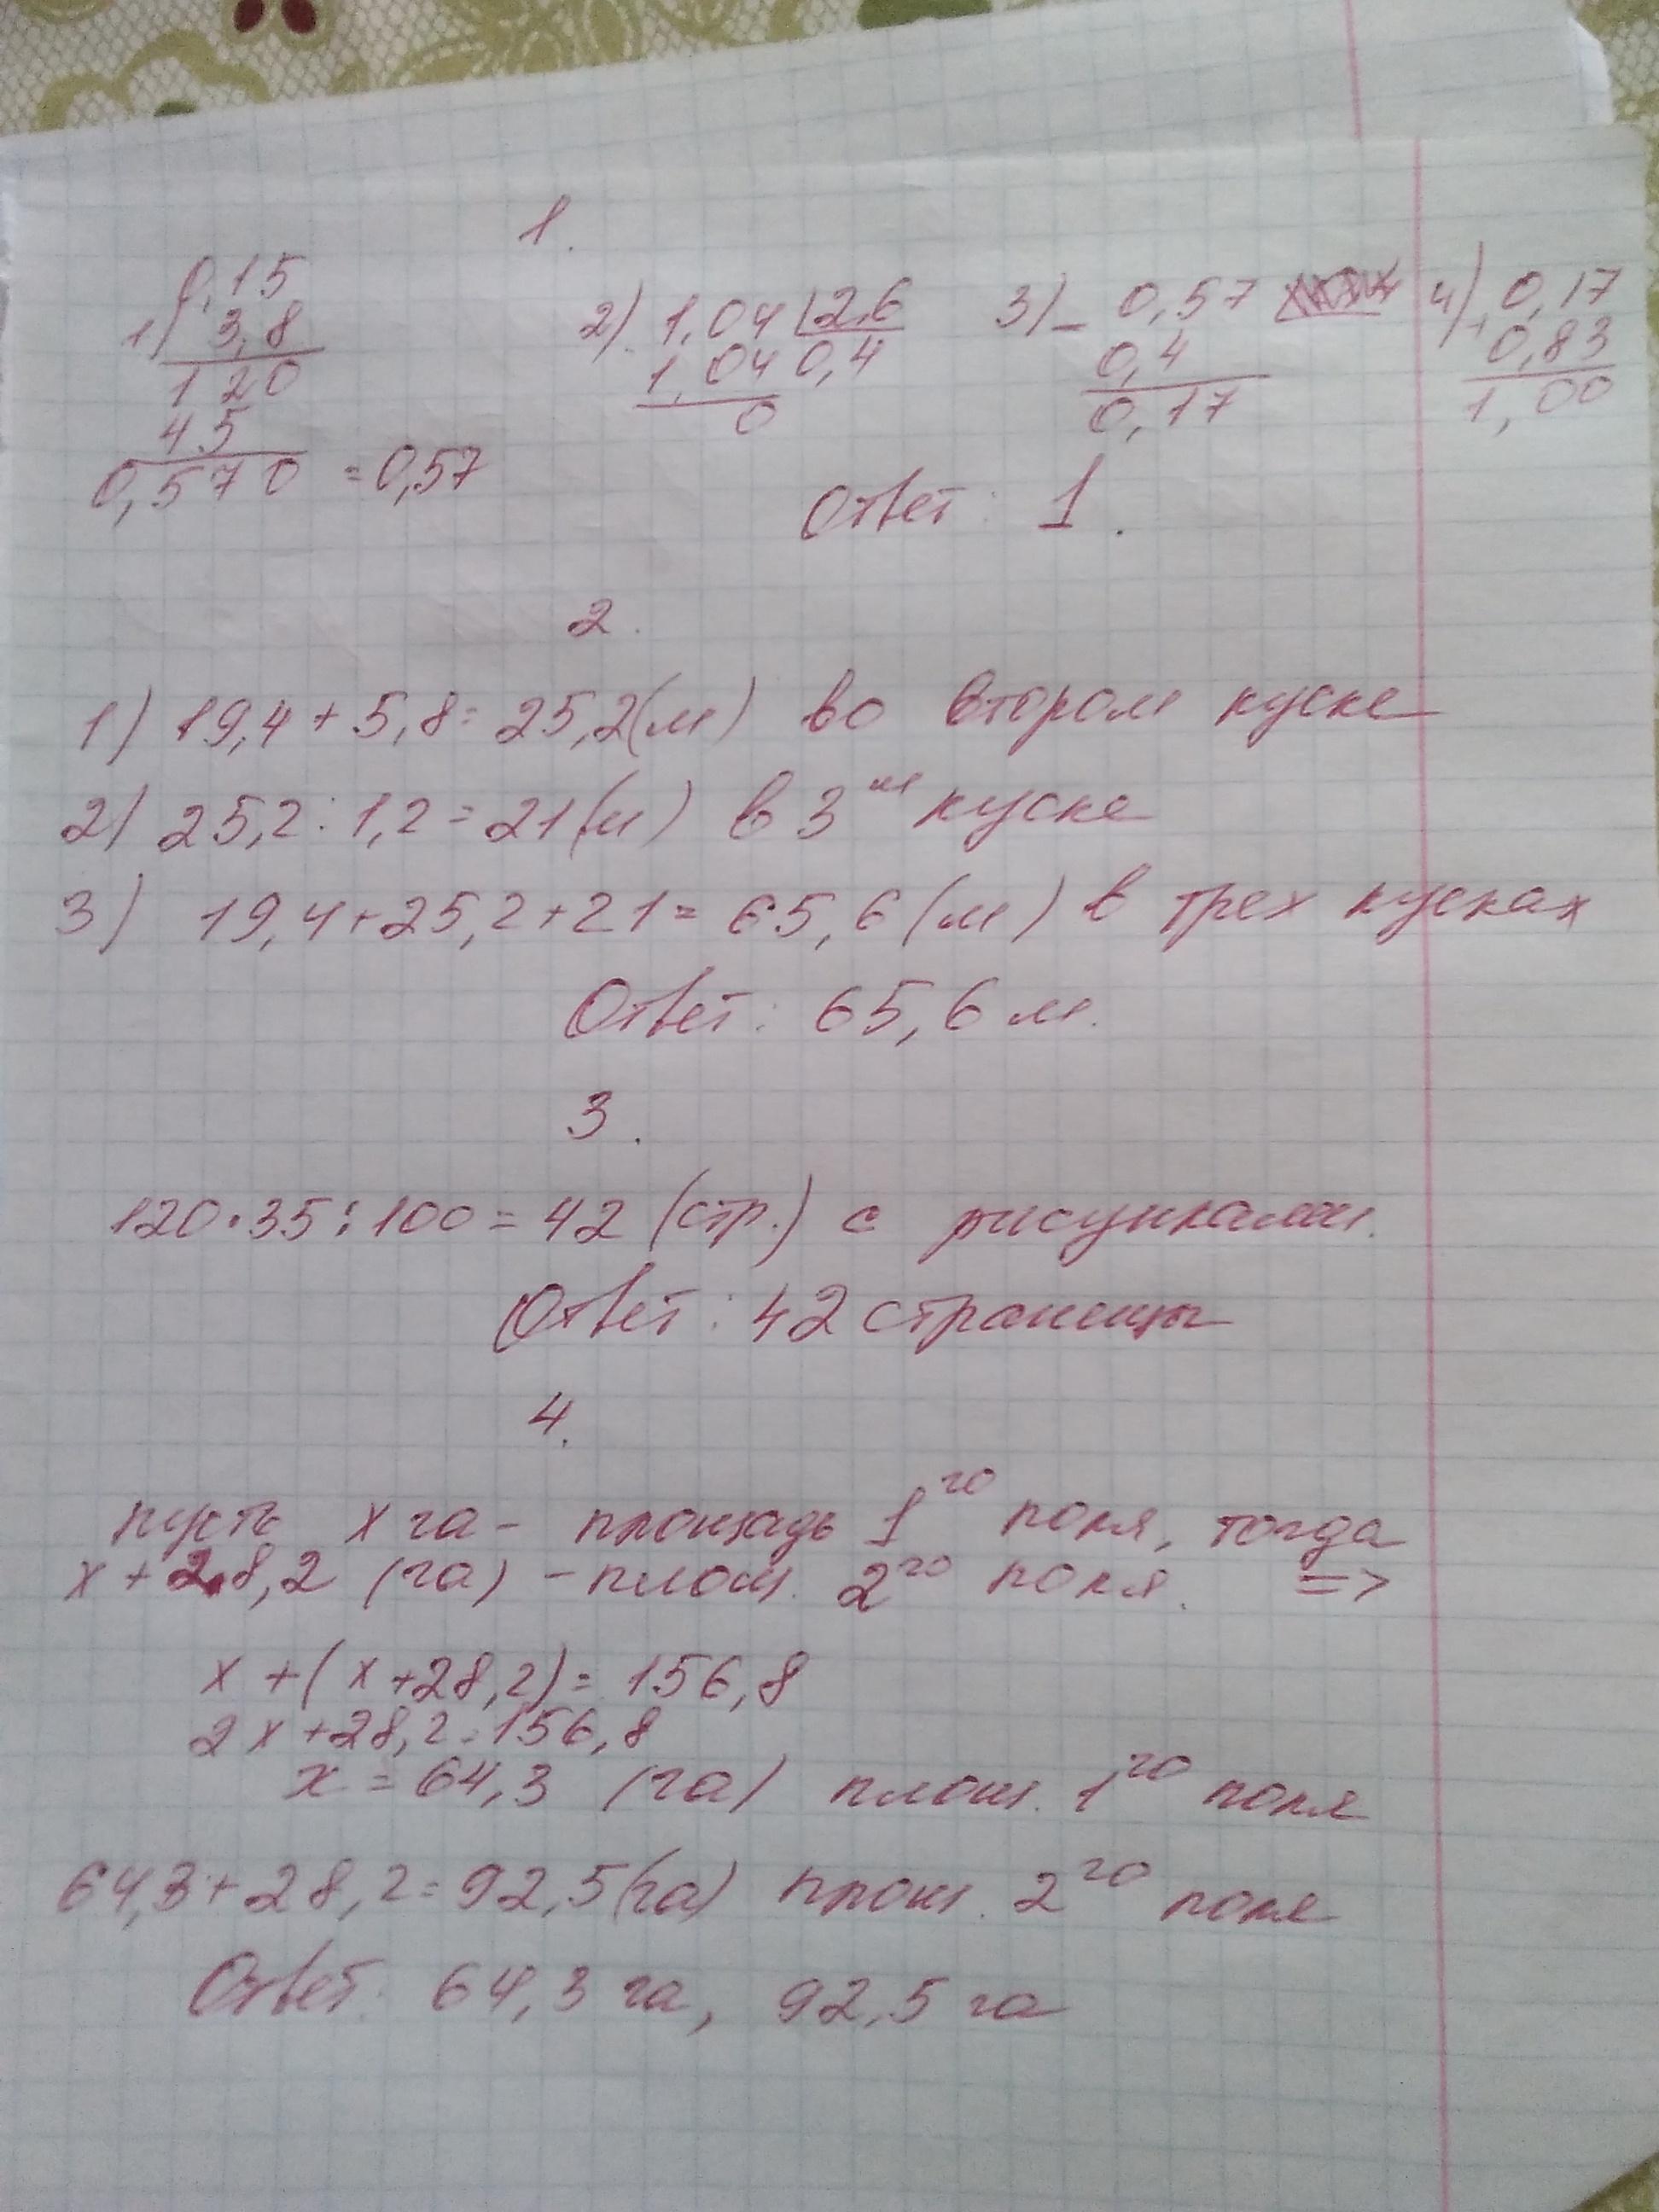 1.
1) 0,15
3,8
120
45
0,570 = 0,57
2) 1,04 | 2,6
1,04 0,4
0
3) - 0,57
0,4
0,17
4) + 0,17
0,83
1,00
Ответ: 1.
2.
1) 19,4 + 5,8 = 25,2 (м) во втором куске
2) 25,2 : 1,2 = 21 (м) в 3м куске
3) 19,4 + 25,2 + 21 = 65,6 (м) в трех кусках
Ответ: 65,6 м.
3.
120 · 35 : 100 = 42 (стр.) с рисунками.
Ответ: 42 страницы
4.
пусть х га - площадь 1го поля, тогда
х + 28,2 (га) - площ. 2го поля. =>
х + (х + 28,2) = 156,8
2х + 28,2 = 156,8
х = 64,3 (га) площ. 1го поля
64,3 + 28,2 = 92,5 (га) площ. 2го поля
Ответ: 64,3 га, 92,5 га